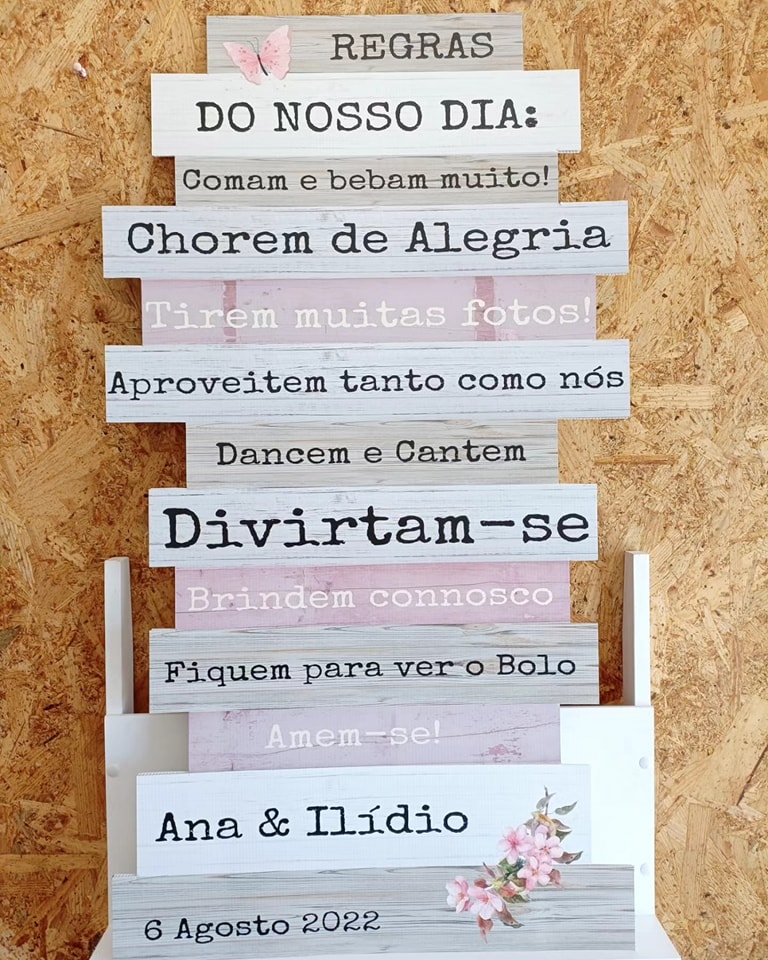 REGRAS
DO NOSSO DIA:
Comam e bebam muito!
Chorem de Alegria
Tirem muitas fotos!
Aproveitem tanto como nós
Dancem e Cantem
Divirtam-se
Brindem connosco
Fiquem para ver o Bolo
Amem-se!
Ana & Ilídio
6 Agosto 2022